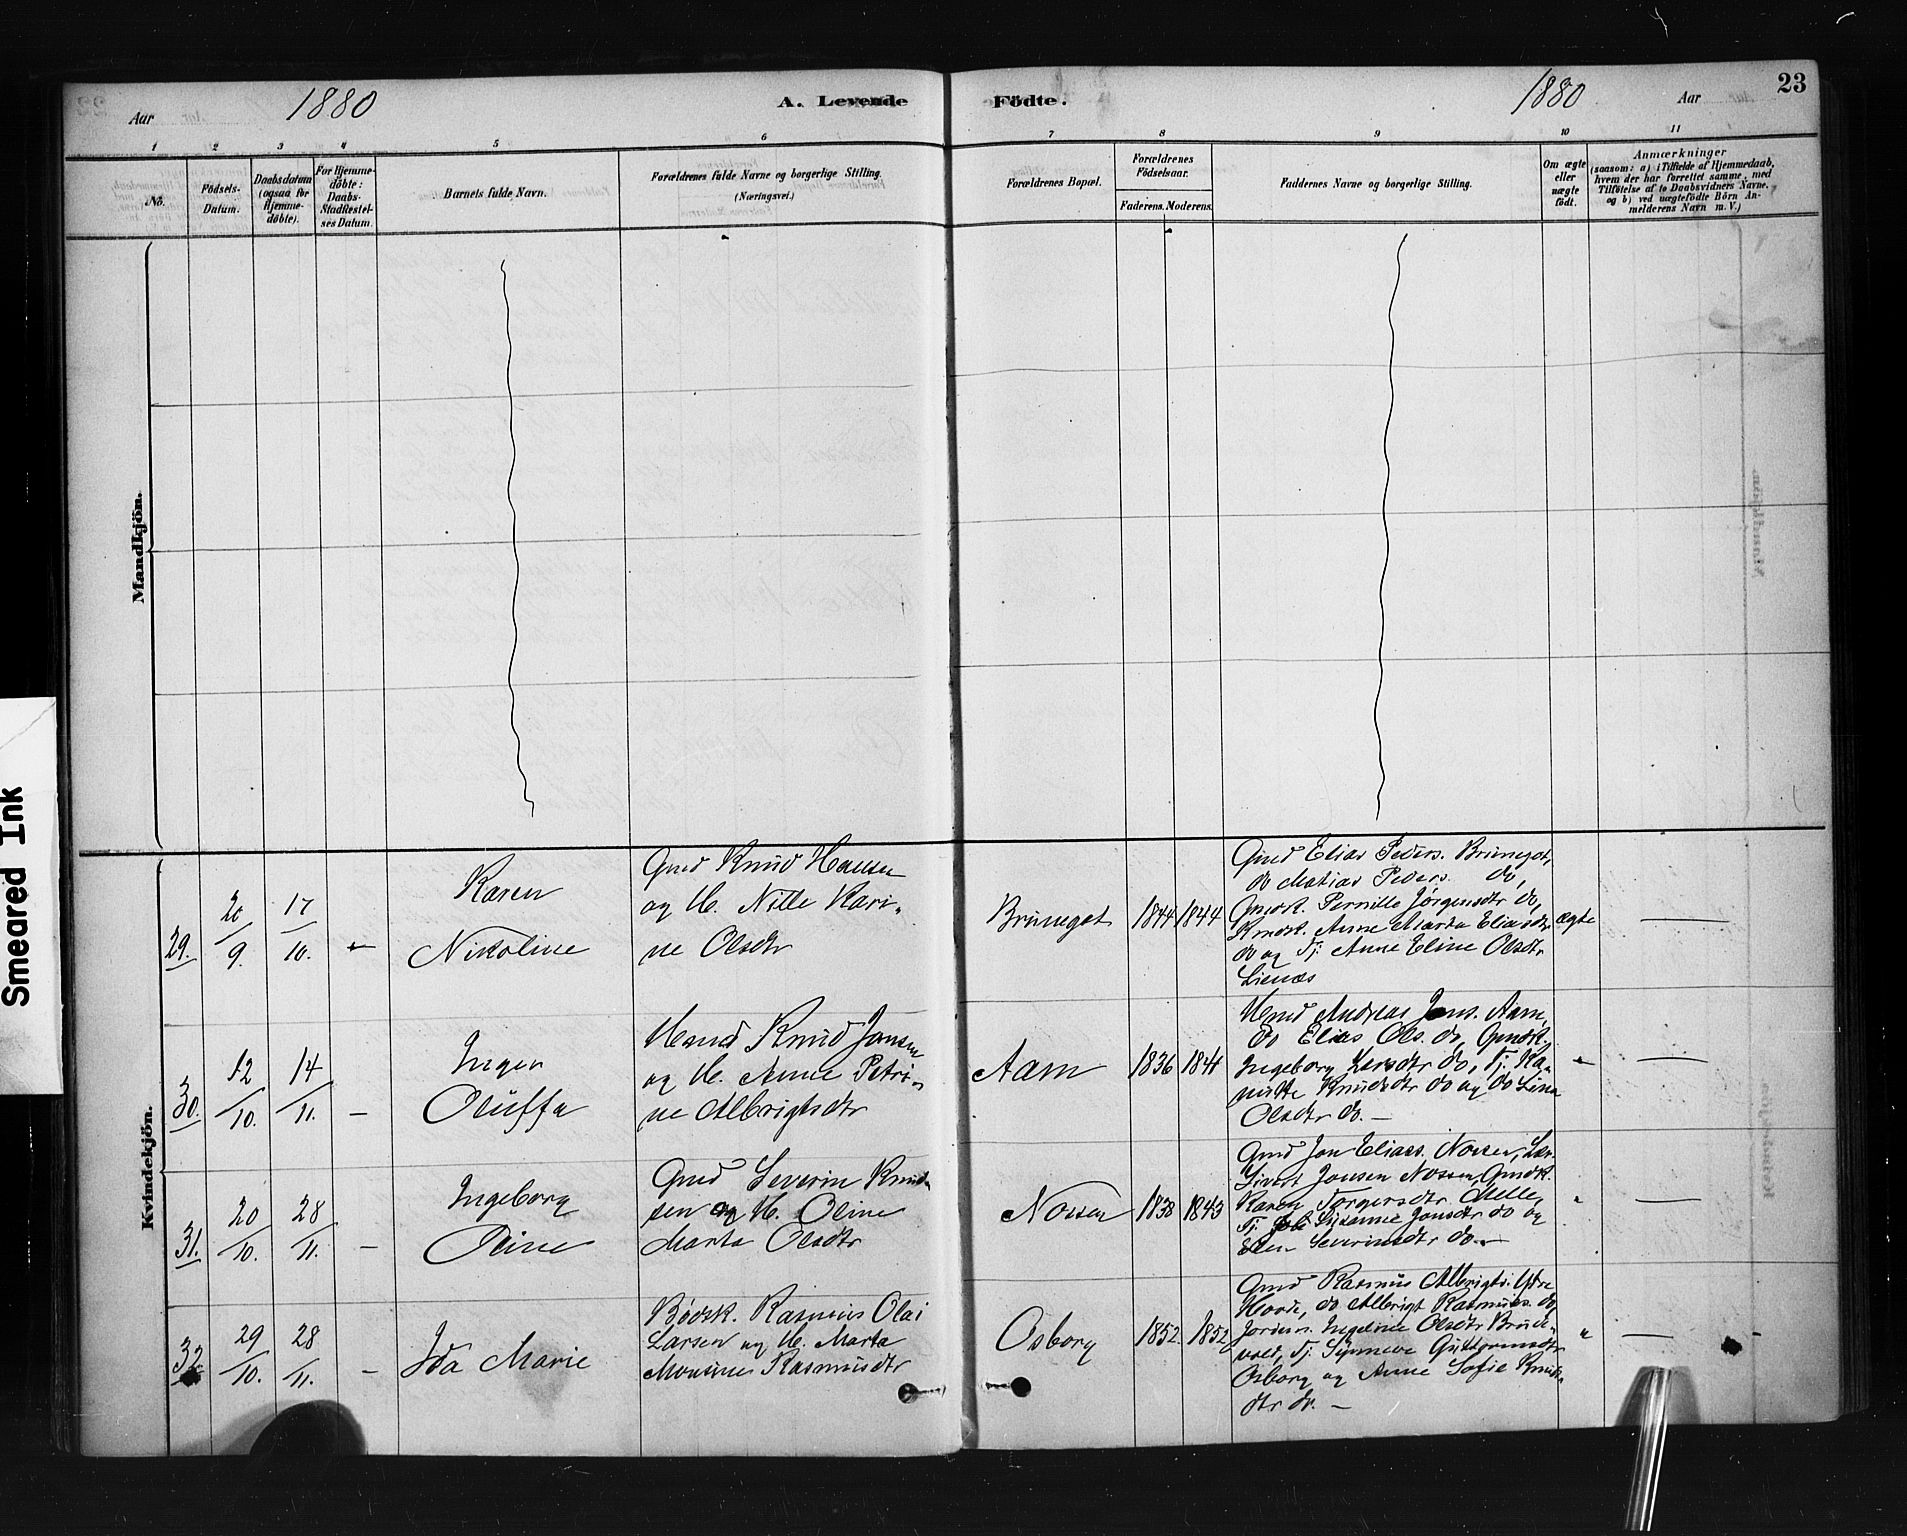 Aar 1880 A. Levende Födte. 1880 Aar 23
1 2 3 4 5 6 7 8 9 10 11
No.
Födsels-
Datum.
Daabsdatum
(ogsaa for
Hjemme-
döbte).
For Hjemme-
döbte:
Daabs-
Stadfestel-
ses Datum.
Barnets fulde Navn.
Forældrenes fulde Navne og borgerlige Stilling.
(Næringsvei.)
Forældrenes Bopæl.
Forældrenes
Födselsaar.
Faderens. Moderens.
Faddernes Navne og borgerlige Stilling.
Om ægte
eller
uægte
födt.
Anmærkninger
(saasom: a) i Tilfælde af Hjemmedaab,
hvem der har forrettet samme, med
Tilföielse af to Daabsvidners Navne,
og b) ved uægtefödte Börn An-
melderens Navn m. V.)
Mandkjön.
Kvindekjön.
29.
20/9.
17/10.
Karen
Nikoline
Gmd Knud Hansen
og H. Nille Kari-
ne Olsdtr
Bruneget
1844 1844
Gmd Elias Peders. Bruneget,
do Matias Peders. do,
Gmdsk. Pernille Jørgensdtr do,
Kmdsk. Anne Marta Eliasdtr
do og Tj. Anne Eline Olsdtr
Lienæs
ægte
30.
12/10.
14/11.
–
Inger
Oluffa
Hmd Knud Jonsen
og H. Anne Petri-
ne Albrigtsdtr
Aam
1836 1841
Hmd Andreas Jons. Aam,
do Elias Ols. do, Gmdsk.
Ingeborg Larsdtr do, Tj. Ka-
nutte Knudsdtr do og do Lina
Olsdtr do. –
"
31.
20/10.
28/11.
–
Ingeborg
Oline
Gmd Severin Knud-
sen og H. Oline
Marta Olsdtr
Nossen
1838 1843
Gmd Jon Eliass. Nossen,
Sivert Jonsen Nossen, Gmdsk.
Karen Torgersdtr Melle,
Tj. Susanne Jonsdtr do og
Elen Severinsdtr do. –
"
32.
29/10.
28/11.
–
Ida Marie
Bødk. Rasmus Olai
Larsen og H. Marta
Monsine Rasmusdtr
Osborg
1852. 1852
Gmd Rasmus Albrigts. Ytre
Hovde, do Albrigt Rasmuss. do,
Jorderm. Ingeline Olsdtr Brude-
vold, Tj. Synneve Guttormsdtr
Osborg og Anne Sofie Knuds-
dtr do. –
"
Smeared Ink